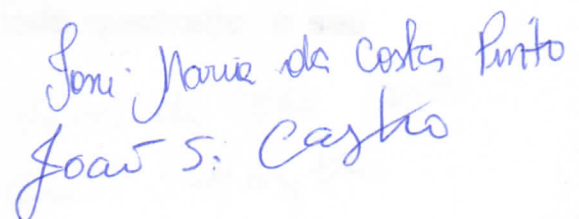 José Maria da Costa Pinto
João S. Castro